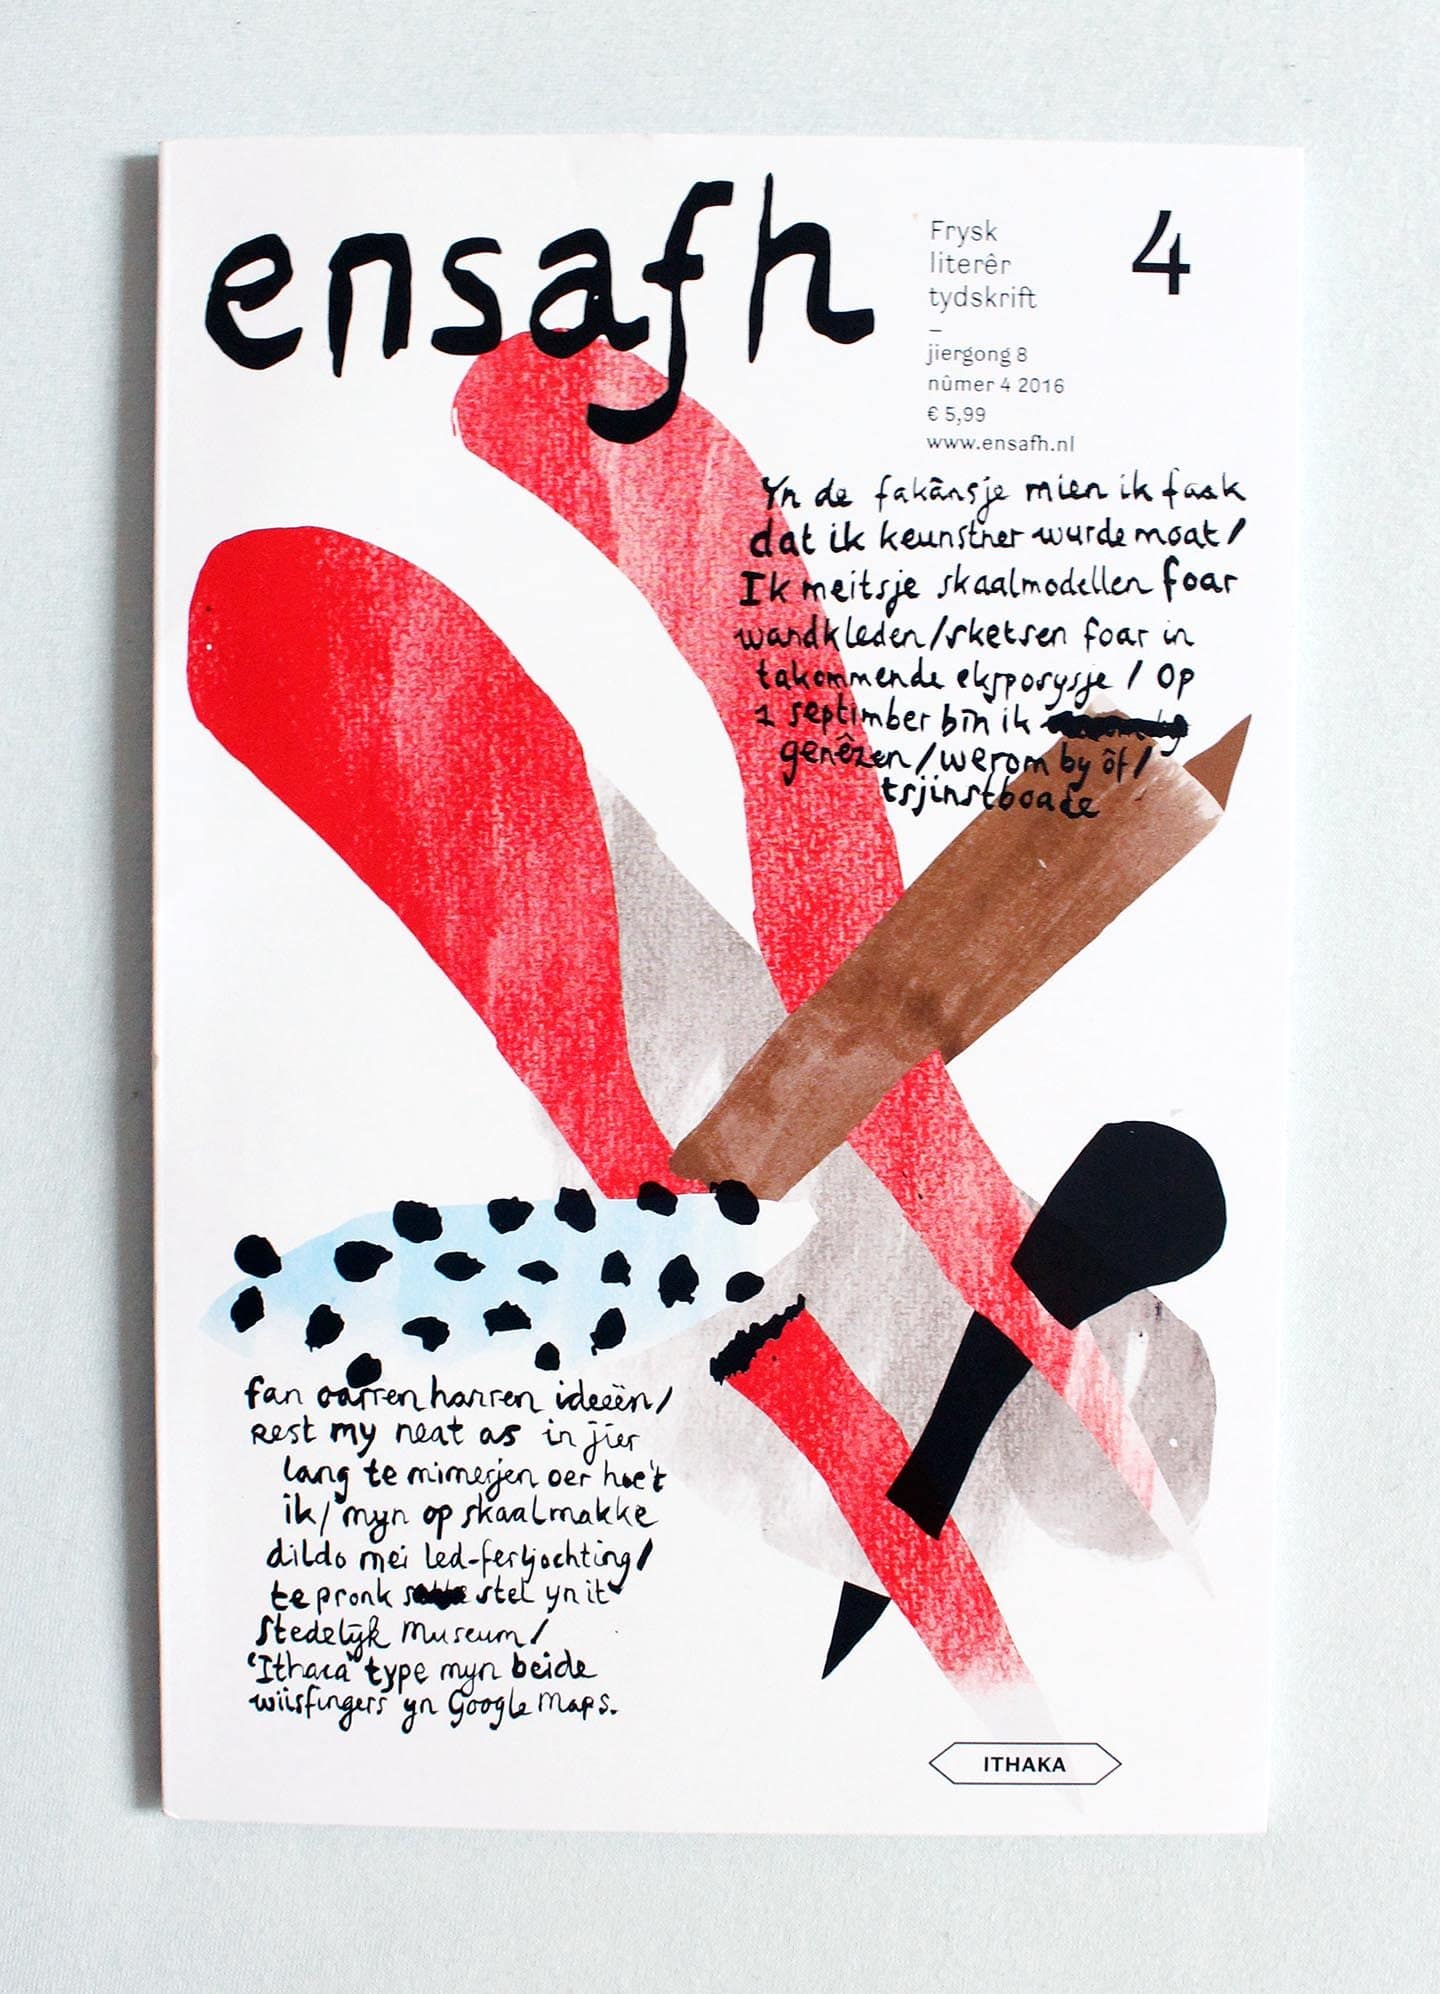 ensafh
Frysk
literêr
tydskrift
–
jiergong 8
nûmer 4 2016
€ 5,99
www.ensafh.nl
4
Yn de fakânsje mien ik faak
dat ik keunstner wurde moat /
Ik meitsje skaalmodellen foar
wandkleden / sketsen foar in
takommende eksposysje / Op
1 septimber bin ik
genêzen / werom by ôf /
tsjinstboade
fan oarren harren ideeën /
Rest my neat as in jier
lang te mimerjen oer hoe't
ik / myn op skaal makke
dildo mei led-ferljochting /
te pronk stel yn it
Stedelijk Museum /
‘Ithaca’ type myn beide
wiisfingers yn Google Maps.
ITHAKA